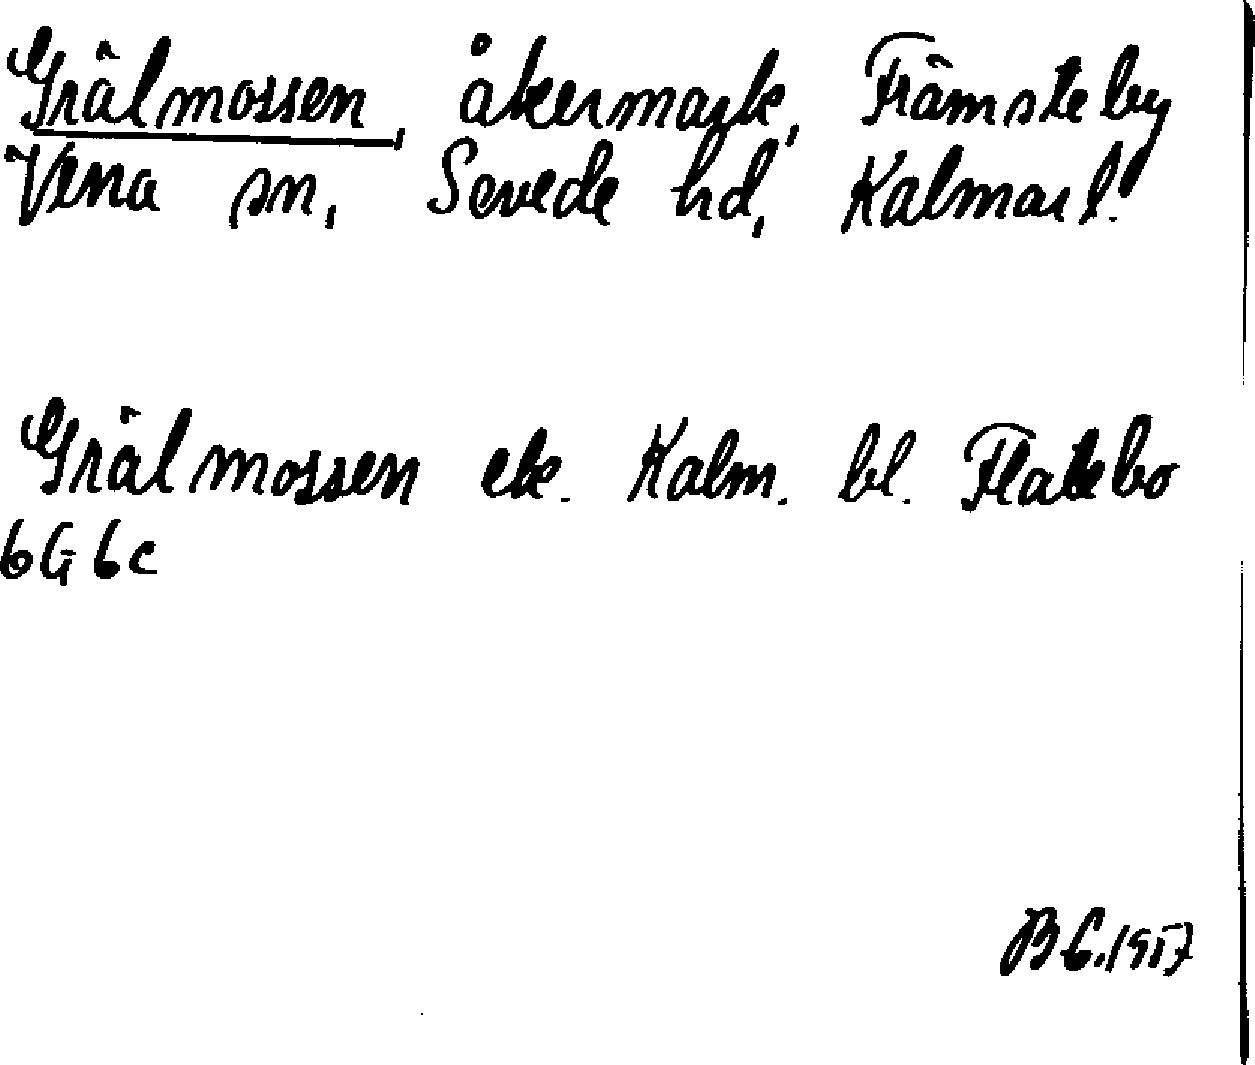 Grälmossen, åkermark, Främsteby
Vena sn, Sevede hd, Kalmar l.
Grälmossen ek. Kalm. bl. Flatebo
6G 6c
1957